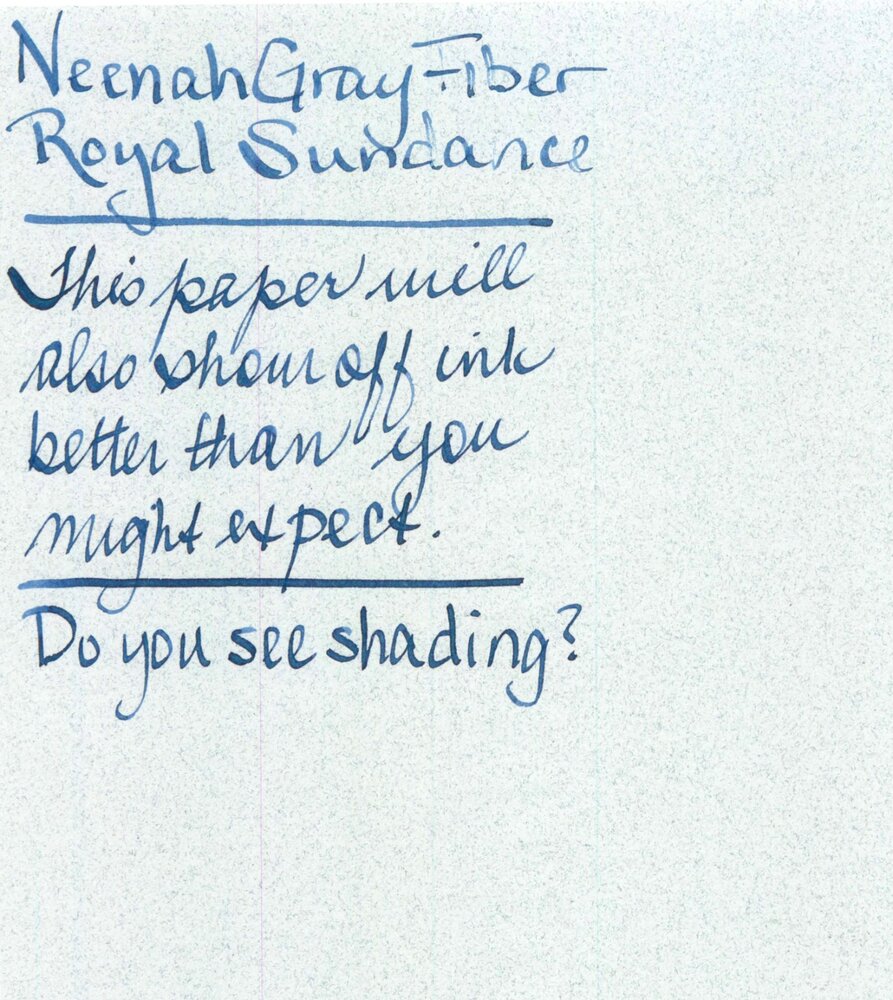 Neenah Gray Fiber
Royal Sundance
This paper will
also show off ink
better than you
might expect.
Do you see shading?